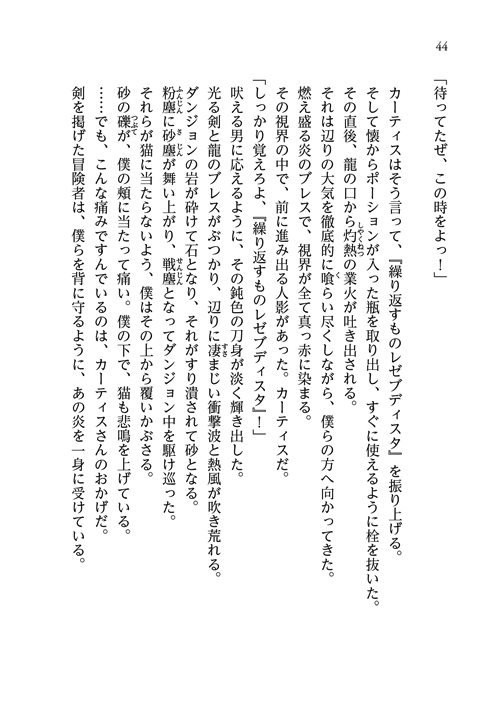 44
「待ってたぜ、この時をよっ！」
カーティスはそう言って、『繰り返すものレゼブディスタ』を振り上げる。
そして懐からポーションが入った瓶を取り出し、すぐに使えるように栓を抜いた。
その直後、龍の口から灼熱の業火が吐き出される。
それは辺りの大気を徹底的に喰らい尽くしながら、僕らの方へ向かってきた。
燃え盛る炎のブレスで、視界が全て真っ赤に染まる。
その視界の中で、前に進み出る人影があった。カーティスだ。
「しっかり覚えろよ、『繰り返すものレゼブディスタ』！」
吠える男に応えるように、その鈍色の刀身が淡く輝き出した。
光る剣と龍のブレスがぶつかり、辺りに凄まじい衝撃波と熱風が吹き荒れる。
ダンジョンの岩が砕けて石となり、それがすり潰されて砂となる。
粉塵に砂塵が舞い上がり、戦塵となってダンジョン中を駆け巡った。
それらが猫に当たらないよう、僕はその上から覆いかぶさる。
砂の礫が、僕の頬に当たって痛い。僕の下で、猫も悲鳴を上げている。
……でも、こんな痛みですんでいるのは、カーティスさんのおかげだ。
剣を掲げた冒険者は、僕らを背に守るように、あの炎を一身に受けている。